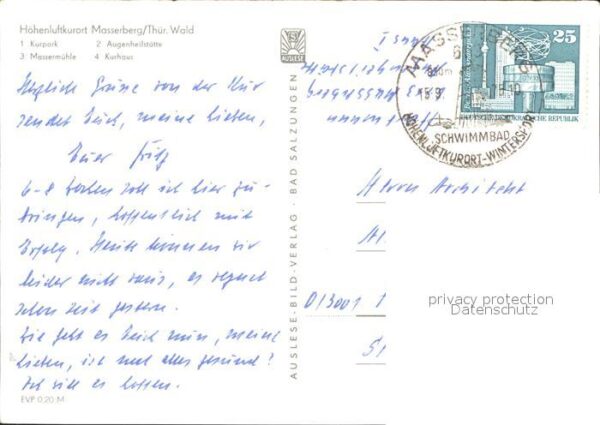 Höhenluftkurort Masserberg/Thür. Wald
1 Kurpark 2 Augenheilstätte
3 Massermühle 4 Kurhaus
Herzliche Grüße von der Kur
sendet Euch, meine Lieben,
Euer Fritz
6-8 Wochen soll ich hier zu-
bringen, hoffentlich mit
Erfolg. Heute können wir
leider nicht raus, es regnet
schon seit gestern.
Wie geht es Euch nun, meine
Lieben, ist alles gesund?
Ich will es hoffen.
EVP 0,20 M
AUSLESE
AUSLESE-BILD-VERLAG · BAD SALZUNGEN
MASSERBERG
SCHWIMMBAD
HÖHENLUFTKURORT-WINTERSPORT
25
DEUTSCHE DEMOKRATISCHE REPUBLIK
Herrn Architekt
privacy protection
Datenschutz